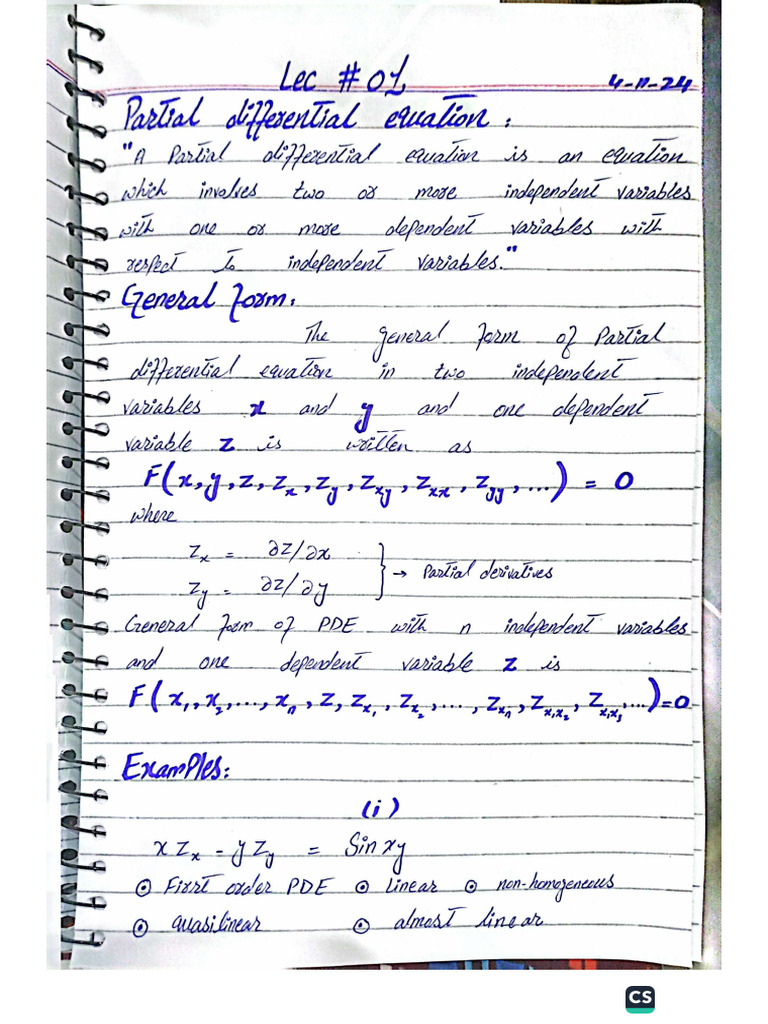 Lec # 01
4-11-24
Partial differential equation:
"A Partial differential equation is an equation
which involves two or more independent variables
with one or more dependent variables with
respect to independent variables."
General Form:
The general form of Partial
differential equation in two independent
variables x and y and one dependent
variable z is written as
F(x, y, z, z_x, z_y, z_xy, z_xx, z_yy, ...) = 0
where
z_x = ∂z/∂x
z_y = ∂z/∂y
} → Partial derivatives
General form of PDE with n independent variables
and one dependent variable z is
F(x₁, x₂, ..., x_n, z, z_x₁, z_x₂, ..., z_xn, z_x₁x₂, z_x₁x₃, ...) = 0
Examples:
(i)
x z_x - y z_y = Sin xy
⊙ First order PDE ⊙ Linear ⊙ non-homogeneous
⊙ quasilinear ⊙ almost linear
CS